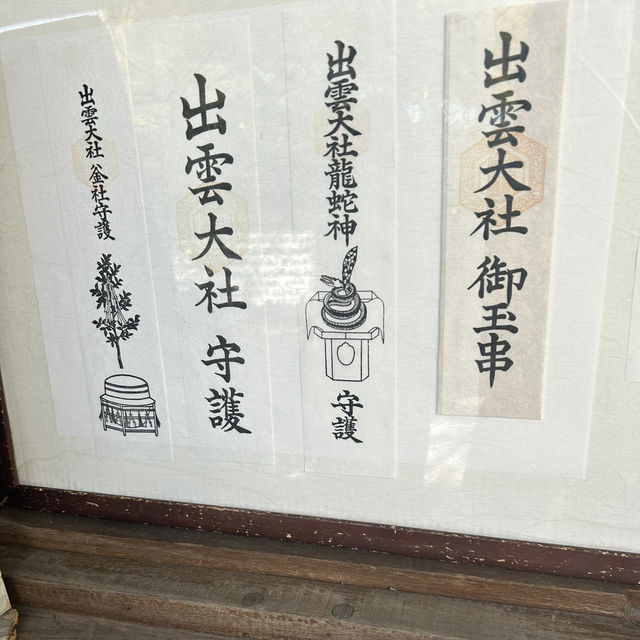 出雲大社 御玉串
出雲大社龍蛇神
守護
出雲大社 守護
出雲大社 釜社守護